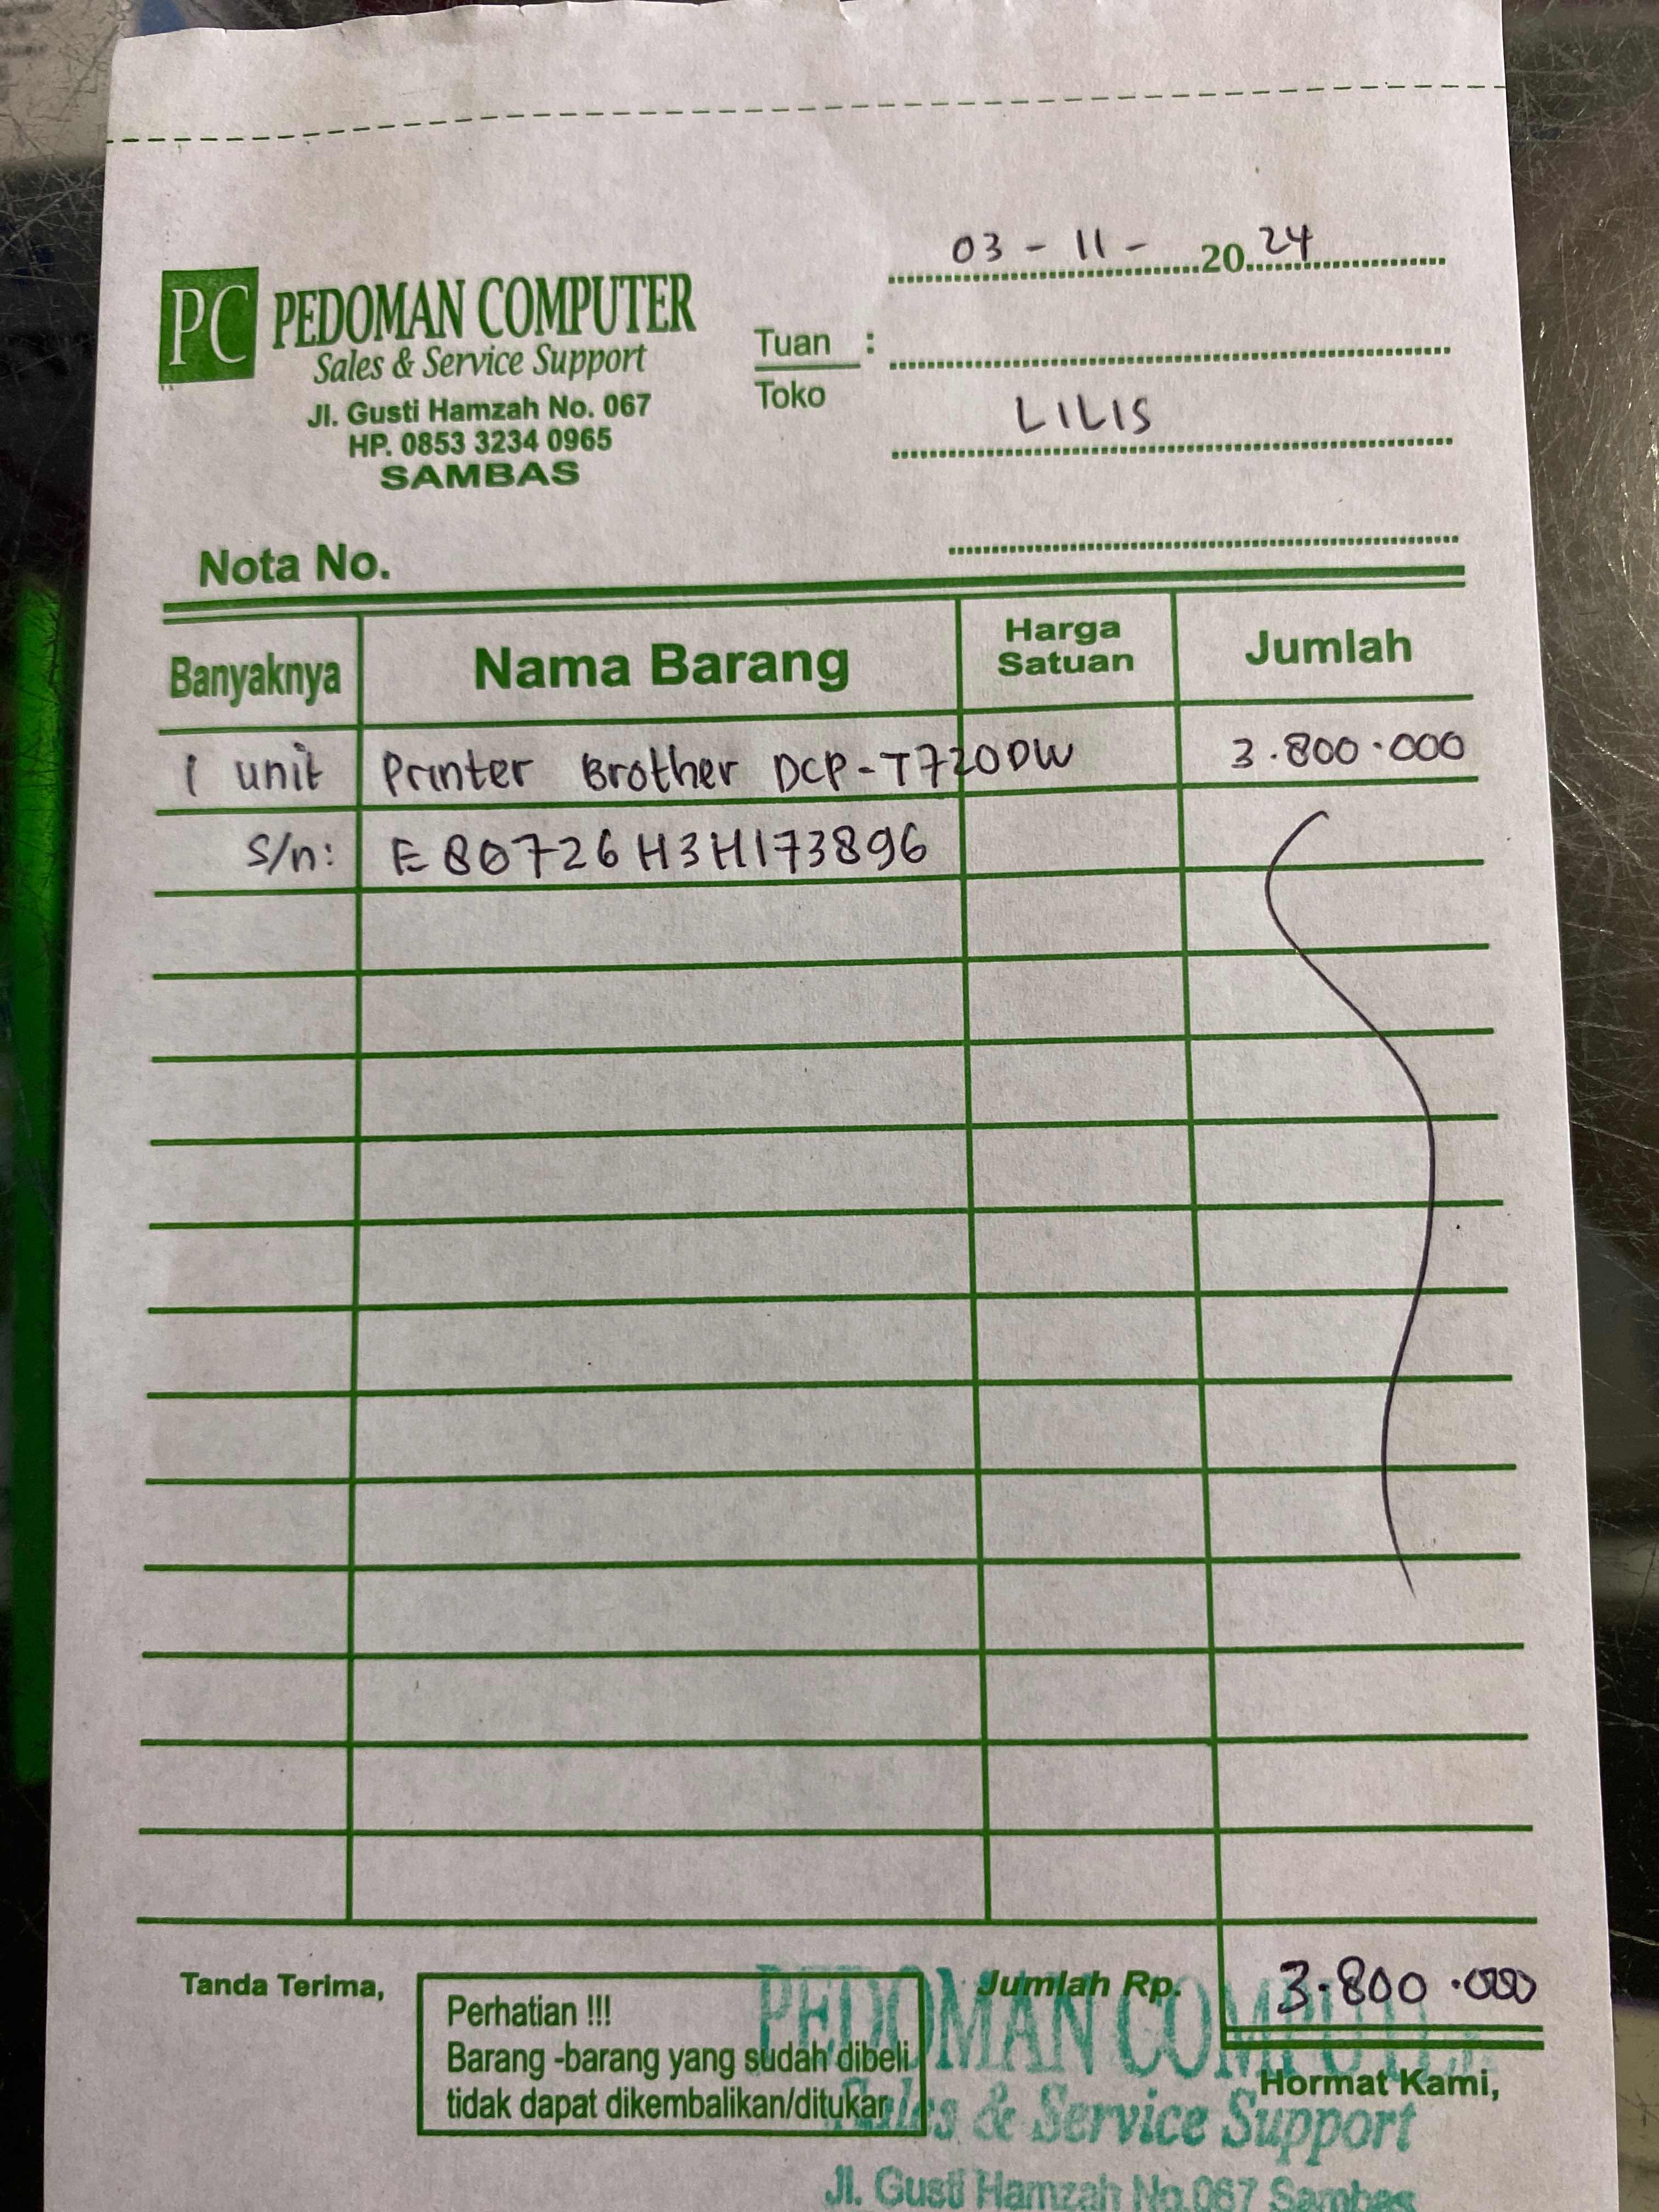 03 - 11 - 20 24
PC PEDOMAN COMPUTER
Sales & Service Support
Jl. Gusti Hamzah No. 067
HP. 0853 3234 0965
SAMBAS
Tuan :
Toko
LILIS
Nota No.
Banyaknya Nama Barang Harga Satuan Jumlah
1 unit Printer Brother DCP-T720DW 3.800.000
S/n: E80726H3H173896
Tanda Terima,
Perhatian !!!
Barang -barang yang sudah dibeli
tidak dapat dikembalikan/ditukar
Jumlah Rp. 3.800.000
Hormat Kami,
PEDOMAN COMPUTER
Sales & Service Support
Jl. Gusti Hamzah No.067 Sambas